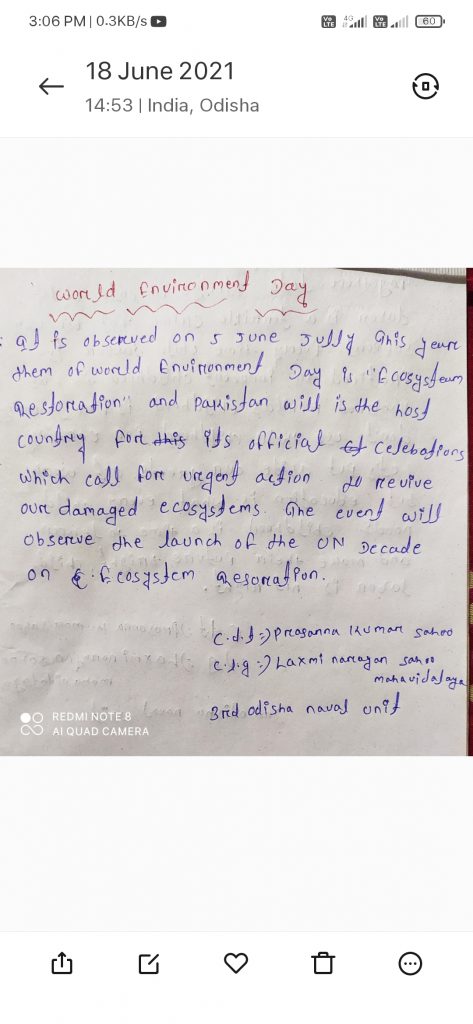 3:06 PM | 0.3KB/s
Vo LTE 4G Vo LTE 60
18 June 2021
14:53 | India, Odisha
World Environment Day
It is observed on 5 June Jully This year
them of world Environment Day is "Ecosysteam
Restoration" and Pakistan will is the host
country for this its official Celebations
which call for urgent action to revive
our damaged ecosystems. The event will
observe the launch of the UN Decade
on Ecosystem Resoration.
c.d.t :-) Prasanna Kumar sahoo
c.l.g :-) Laxmi narayan sahoo
mahavidalaya
3rd odisha naval unit
REDMI NOTE 8
AI QUAD CAMERA